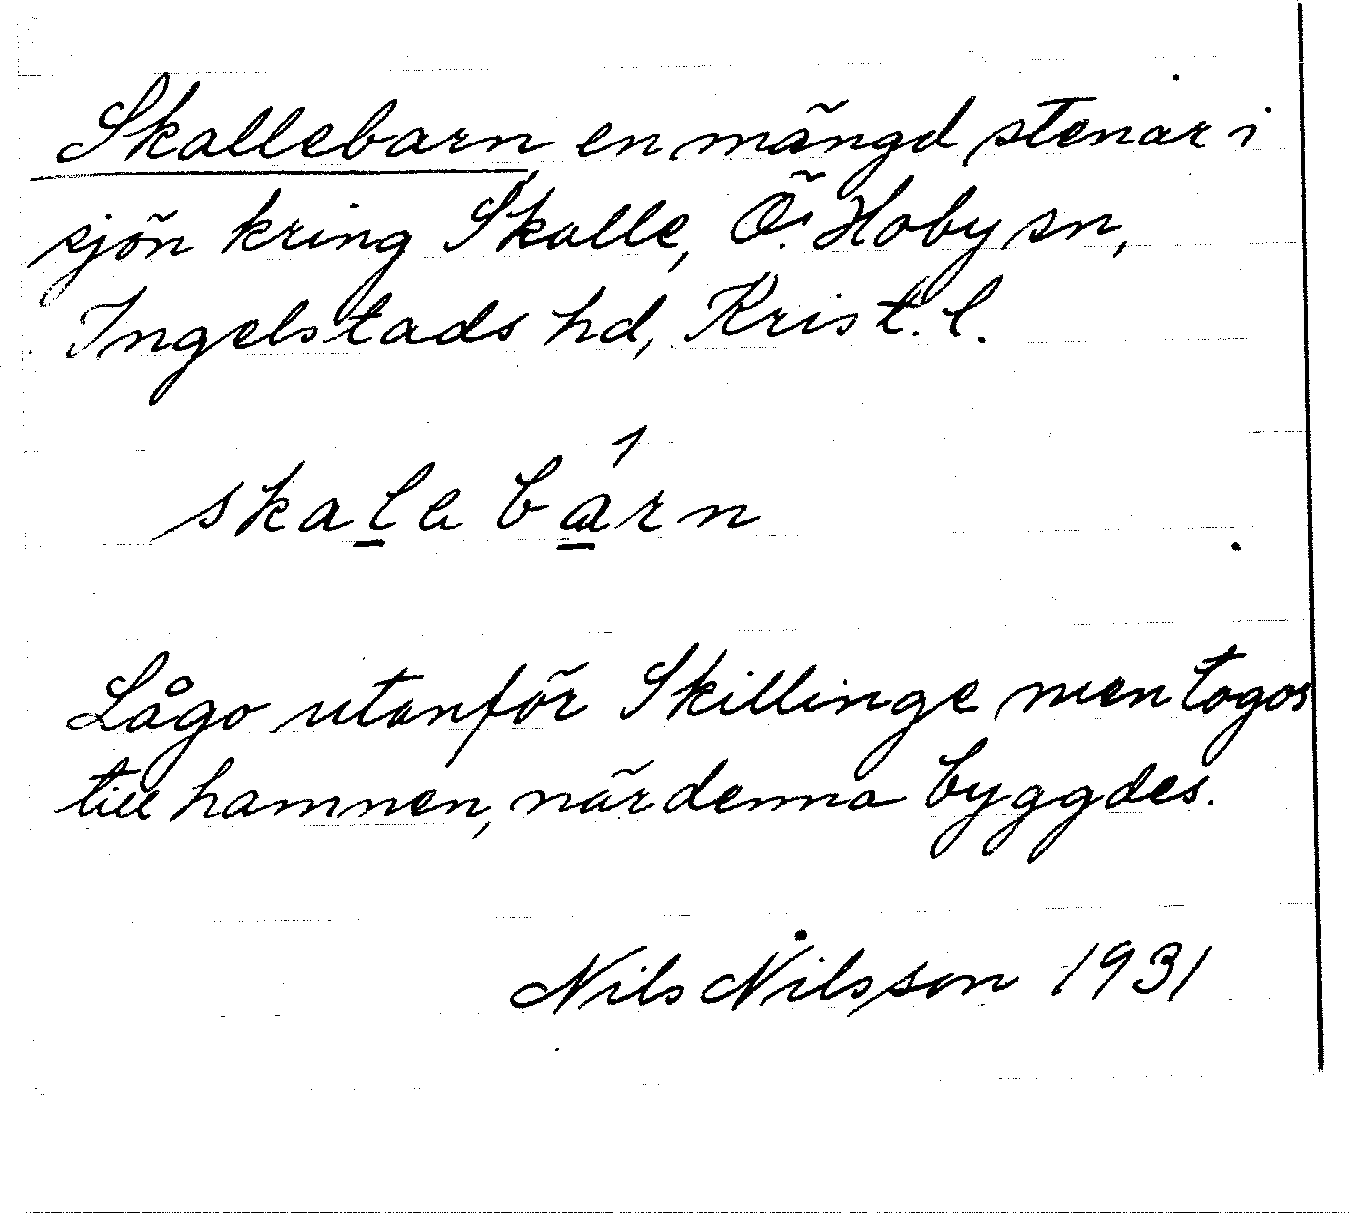 Skallebarn en mängd stenar i
sjön kring Skalle, Ö. Hoby sn,
Ingelstads hd, Krist. l.
skalebárn
Lågo utanför Skillinge men togos
till hamnen, när denna byggdes.
Nils Nilsson 1931